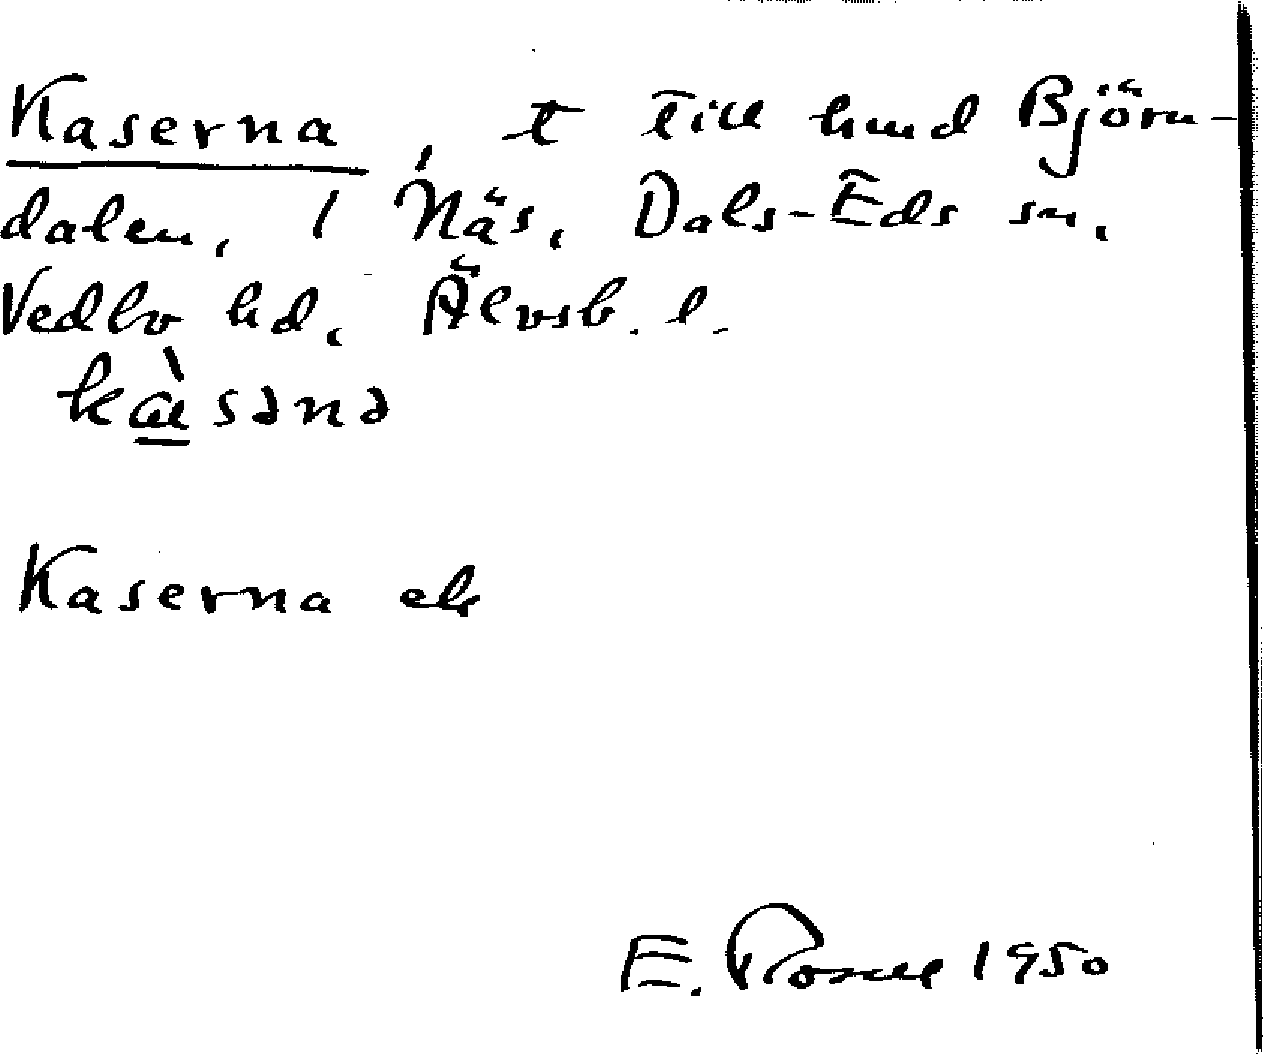 Kaserna, t till hmd Björn-
dalen, 1 Näs, Dals-Eds sn,
Vedbo hd, Älvsb. l.
kàsənə
Kaserna ek
E. Rosell 1950